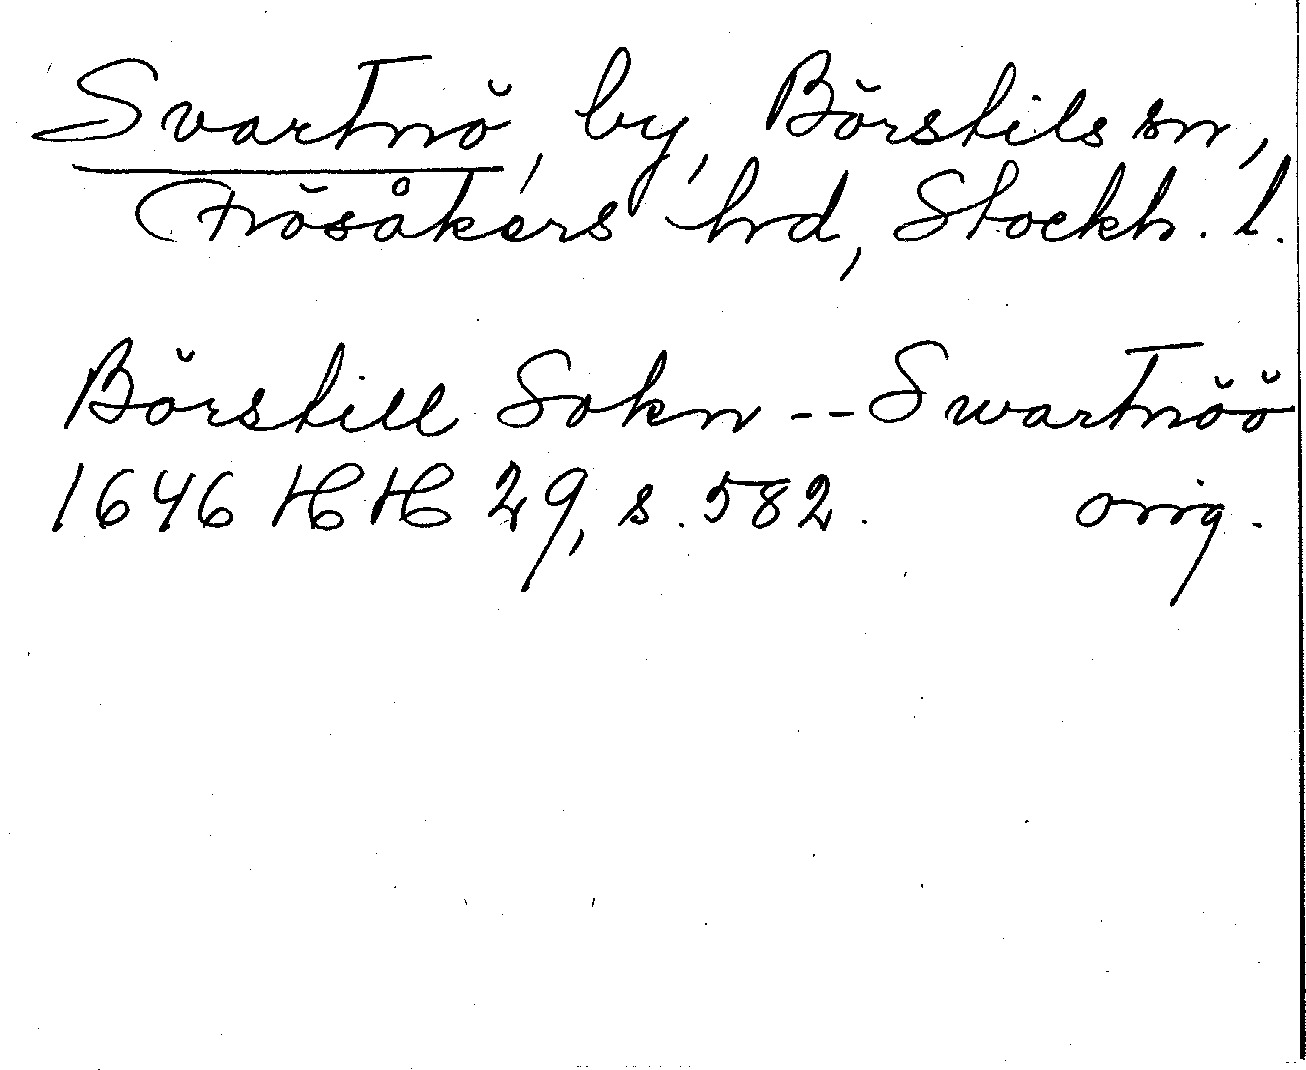 Svartnö, by, Börstils sn,
Frösåkers hrd, Stockh. l.
Börstill Sokn -- Swartnöö
1646 HH 29, s. 582. orig.